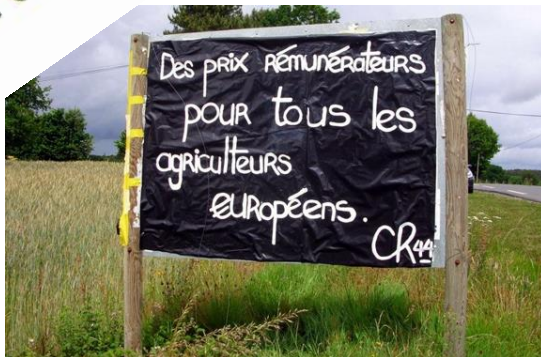 Des prix rémunérateurs
pour tous les
agriculteurs
européens.
CR44